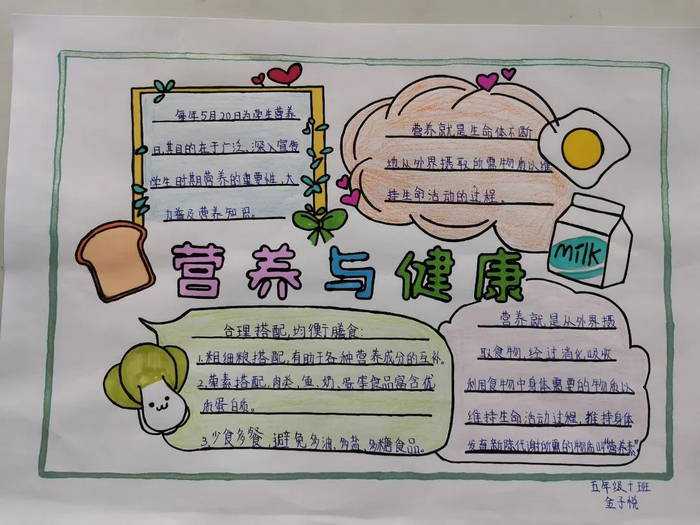 每年5月20日为学生营养
日,其目的在于广泛、深入宣传
学生时期营养的重要性,大
力普及营养知识。
营养就是生命体不断
地从外界摄取所需物质以维
持生命活动的过程。
milk
营养与健康
合理搭配,均衡膳食:
1.粗细粮搭配,有助于各种营养成分的互补。
2.荤素搭配,肉类、鱼、奶、蛋类食品富含优
质蛋白质。
3.少食多餐,避免多油、多盐、多糖食品。
营养就是从外界摄
取食物,经过消化吸收
利用食物中身体需要的物质以
维持生命活动过程,维持身体
发育新陈代谢所需的物质叫"营养素"
五年级十班
金子悦